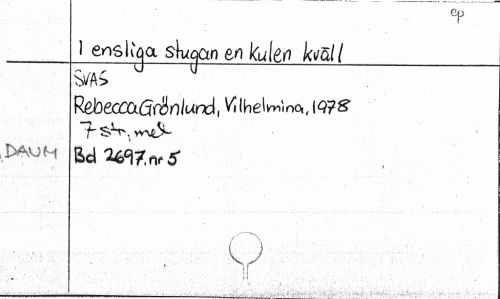 ep
I ensliga stugan en kulen kväll
SVAS
Rebecca Grönlund, Vilhelmina, 1978
7 str, mel
DAUM Bd 2697. nr 5